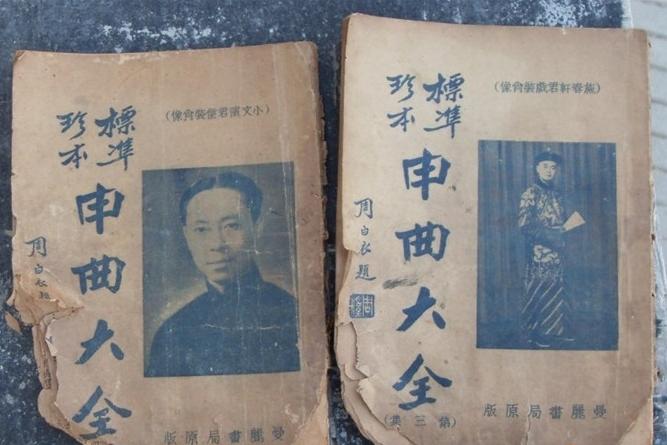 標準
珍本
申曲大全
周白衣題
(小文濱君便裝肖像)
曼麗書局原版
標準
珍本
申曲大全
周白衣題
(施春軒君戲裝肖像)
(第三集)
曼麗書局原版